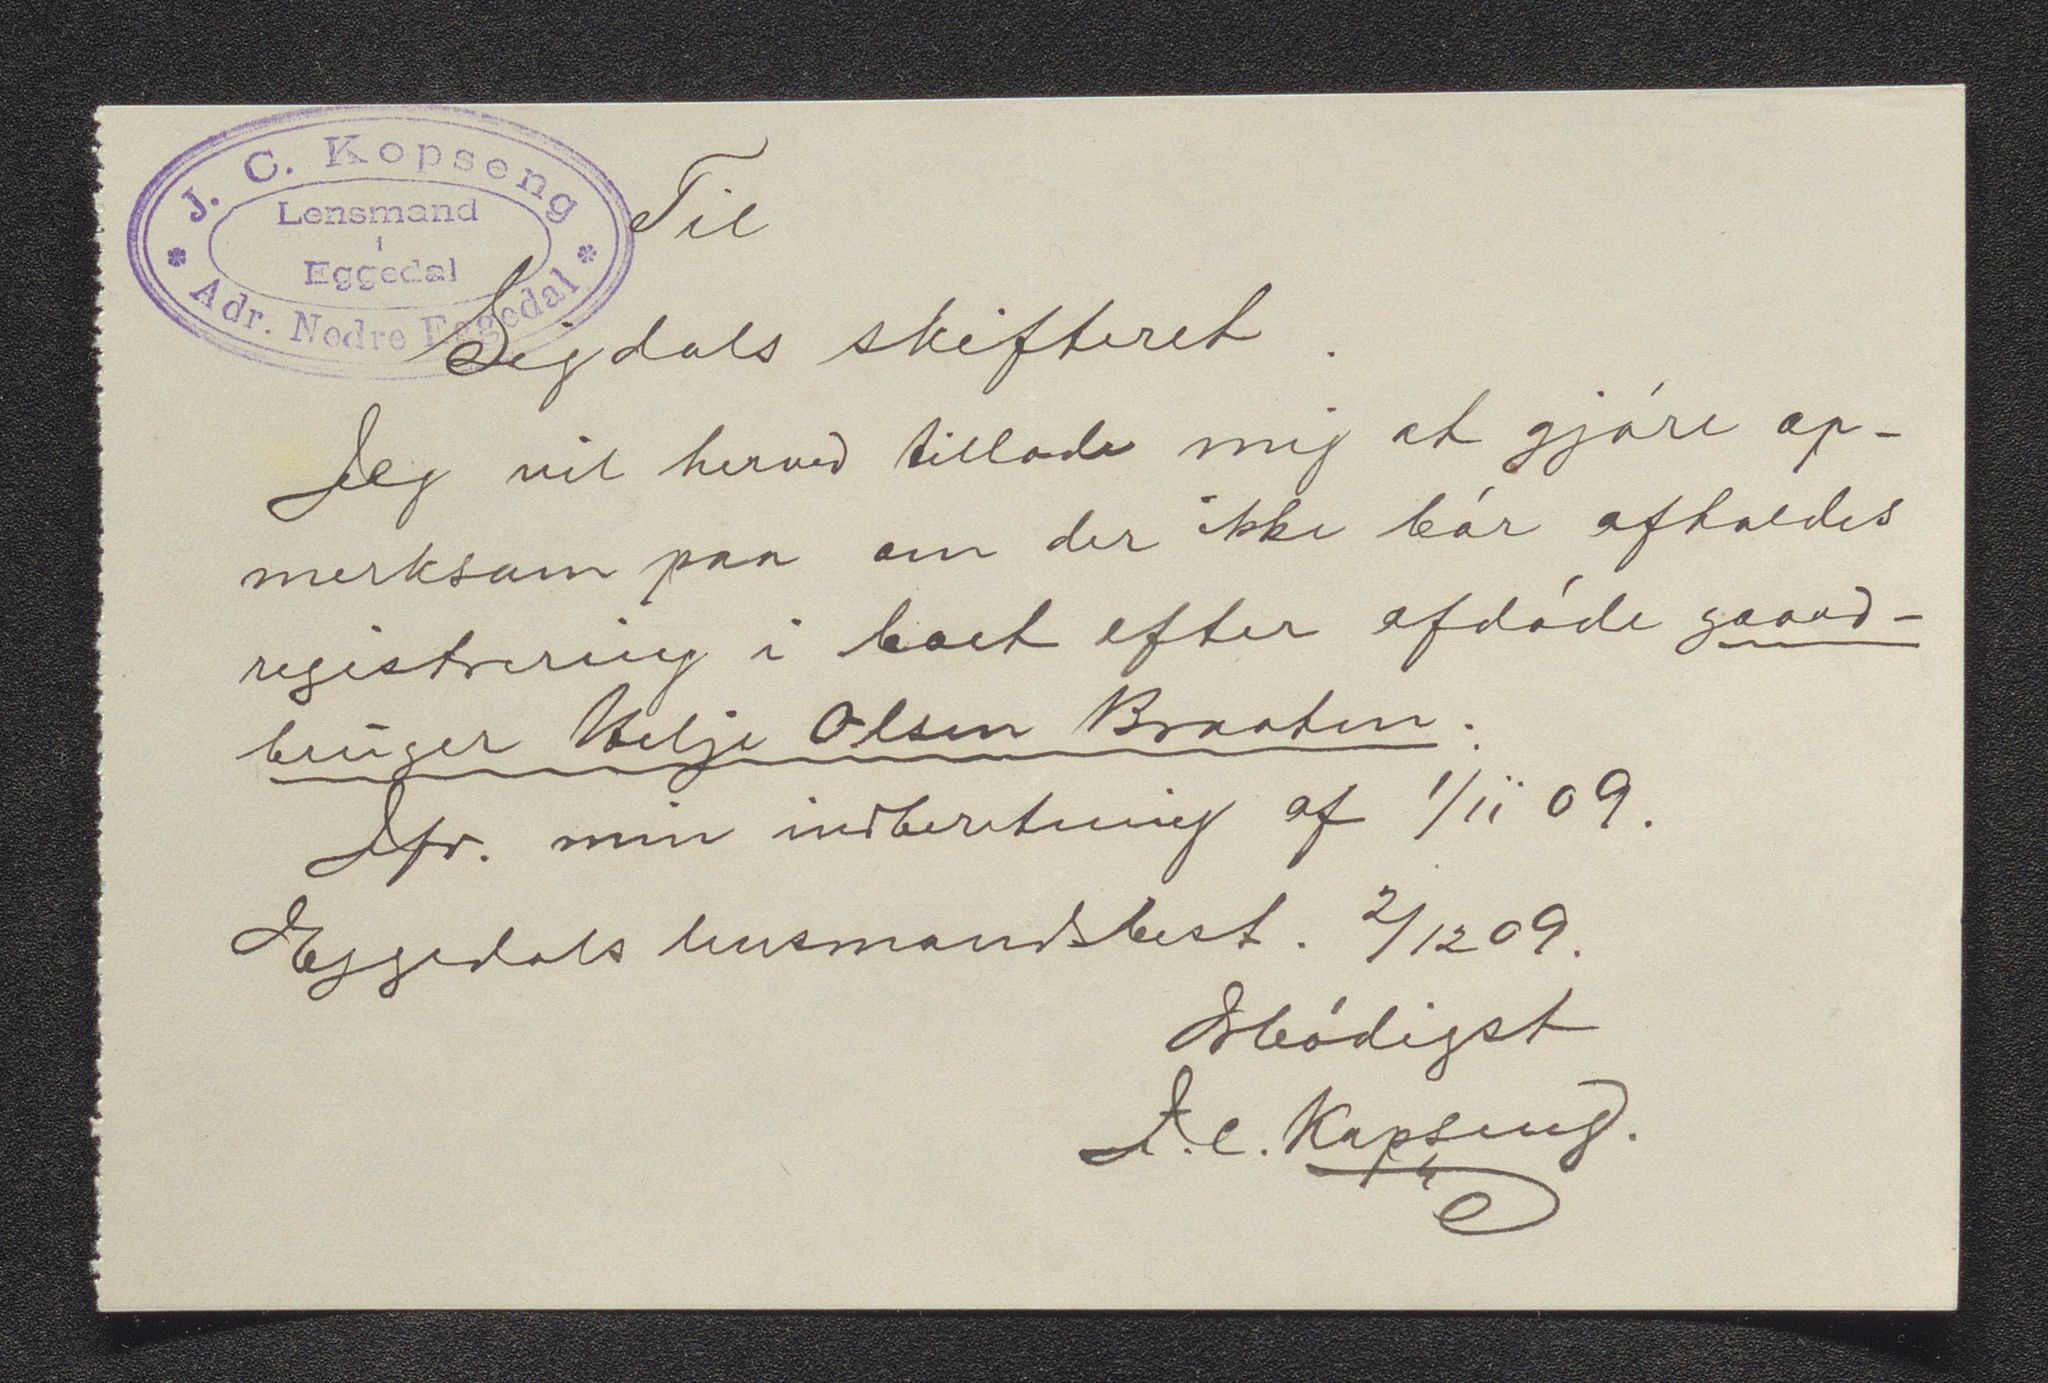 J. C. Kopseng
Lensmand
i
Eggedal
Adr. Nedre Eggedal
Til
Sigdals skifteret.
Jeg vil herved tillade mig at gjóre op-
merksom paa om der ikke bór afholdes
registrering i boet efter afdóde gaard-
bruger Helje Olsen Braaten.
Jfr. min indberetning af 1/11 09.
Eggedals lensmandsbest. 2/12 09.
Árbódigst
J. C. Kopseng.